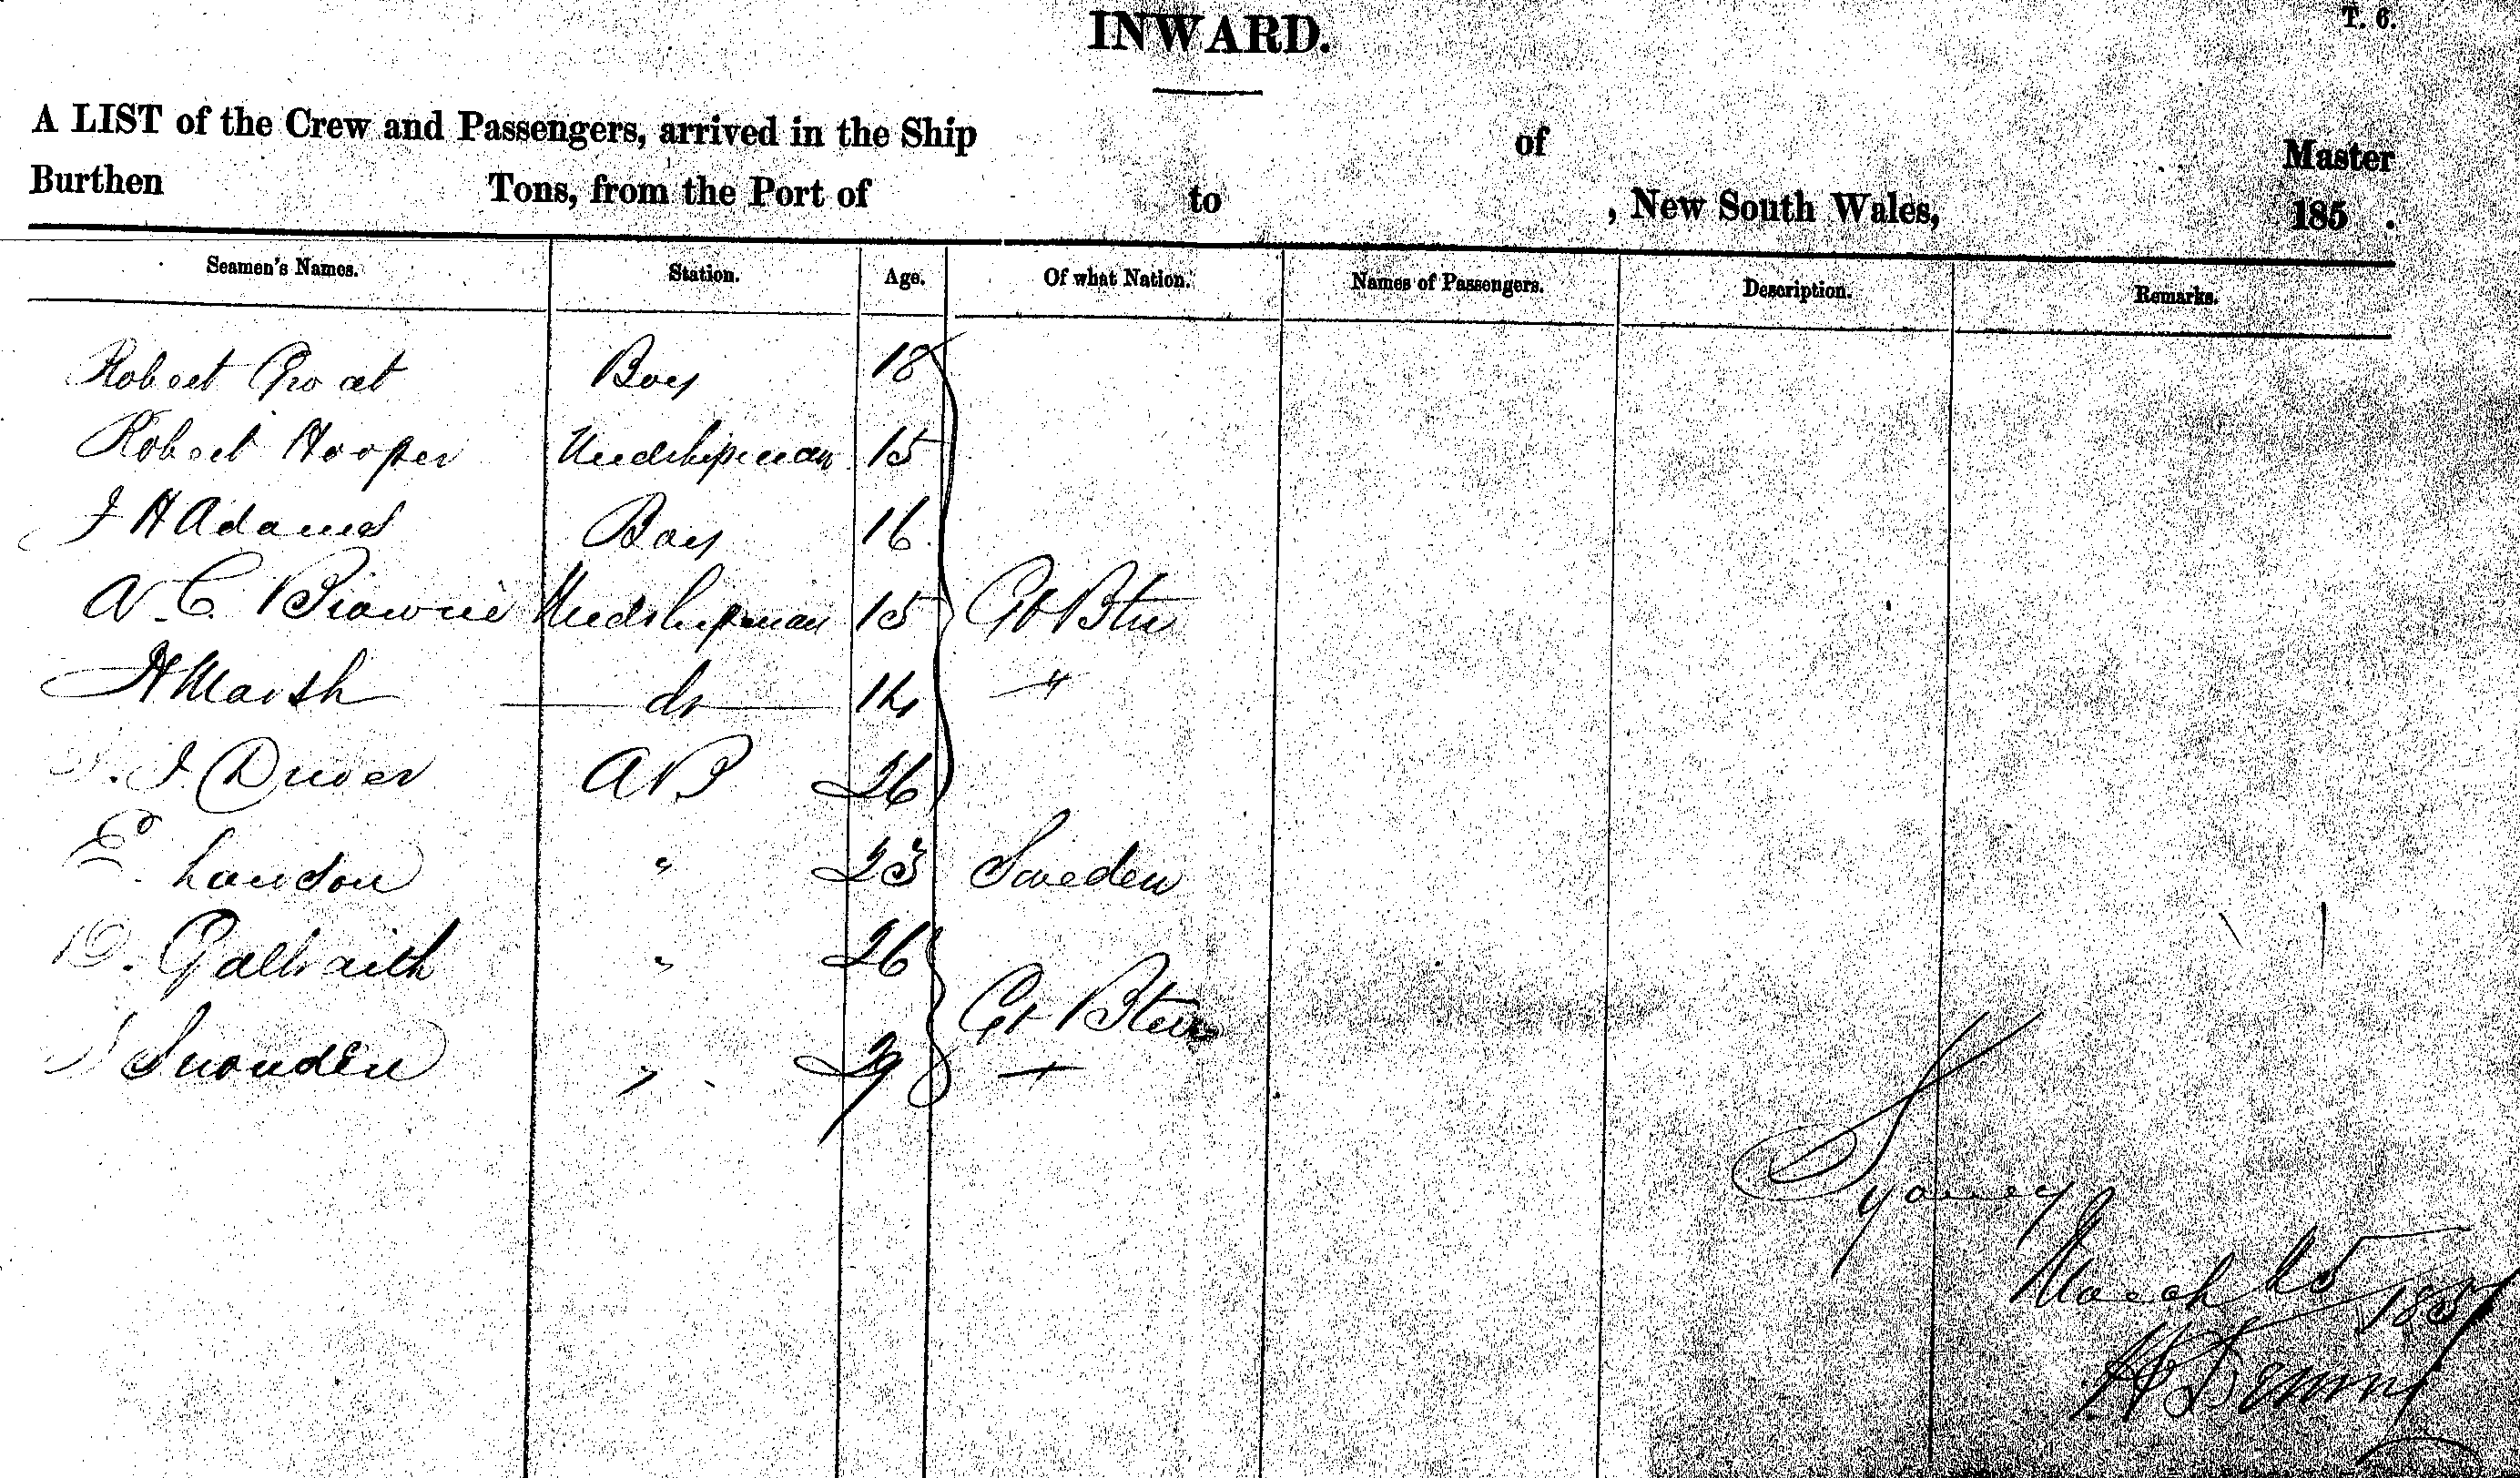 INWARD.
T. 6.
A LIST of the Crew and Passengers, arrived in the Ship of Master
Burthen Tons, from the Port of to , New South Wales, 185 .
Seamen's Names. Station. Age. Of what Nation. Names of Passengers. Description. Remarks.
Robert Groat Boy 18
Robert Hooper Midshipman 15
J H Adams Boy 16
A. C. Browne Midshipman 15 Gt Btn
H Marsh do 14 "
J. Driver AB 26
E. Lawson " 23 Sweden
D. Galbraith " 26
Snowden " 29 Gt Btn
Sydney
March 25
185